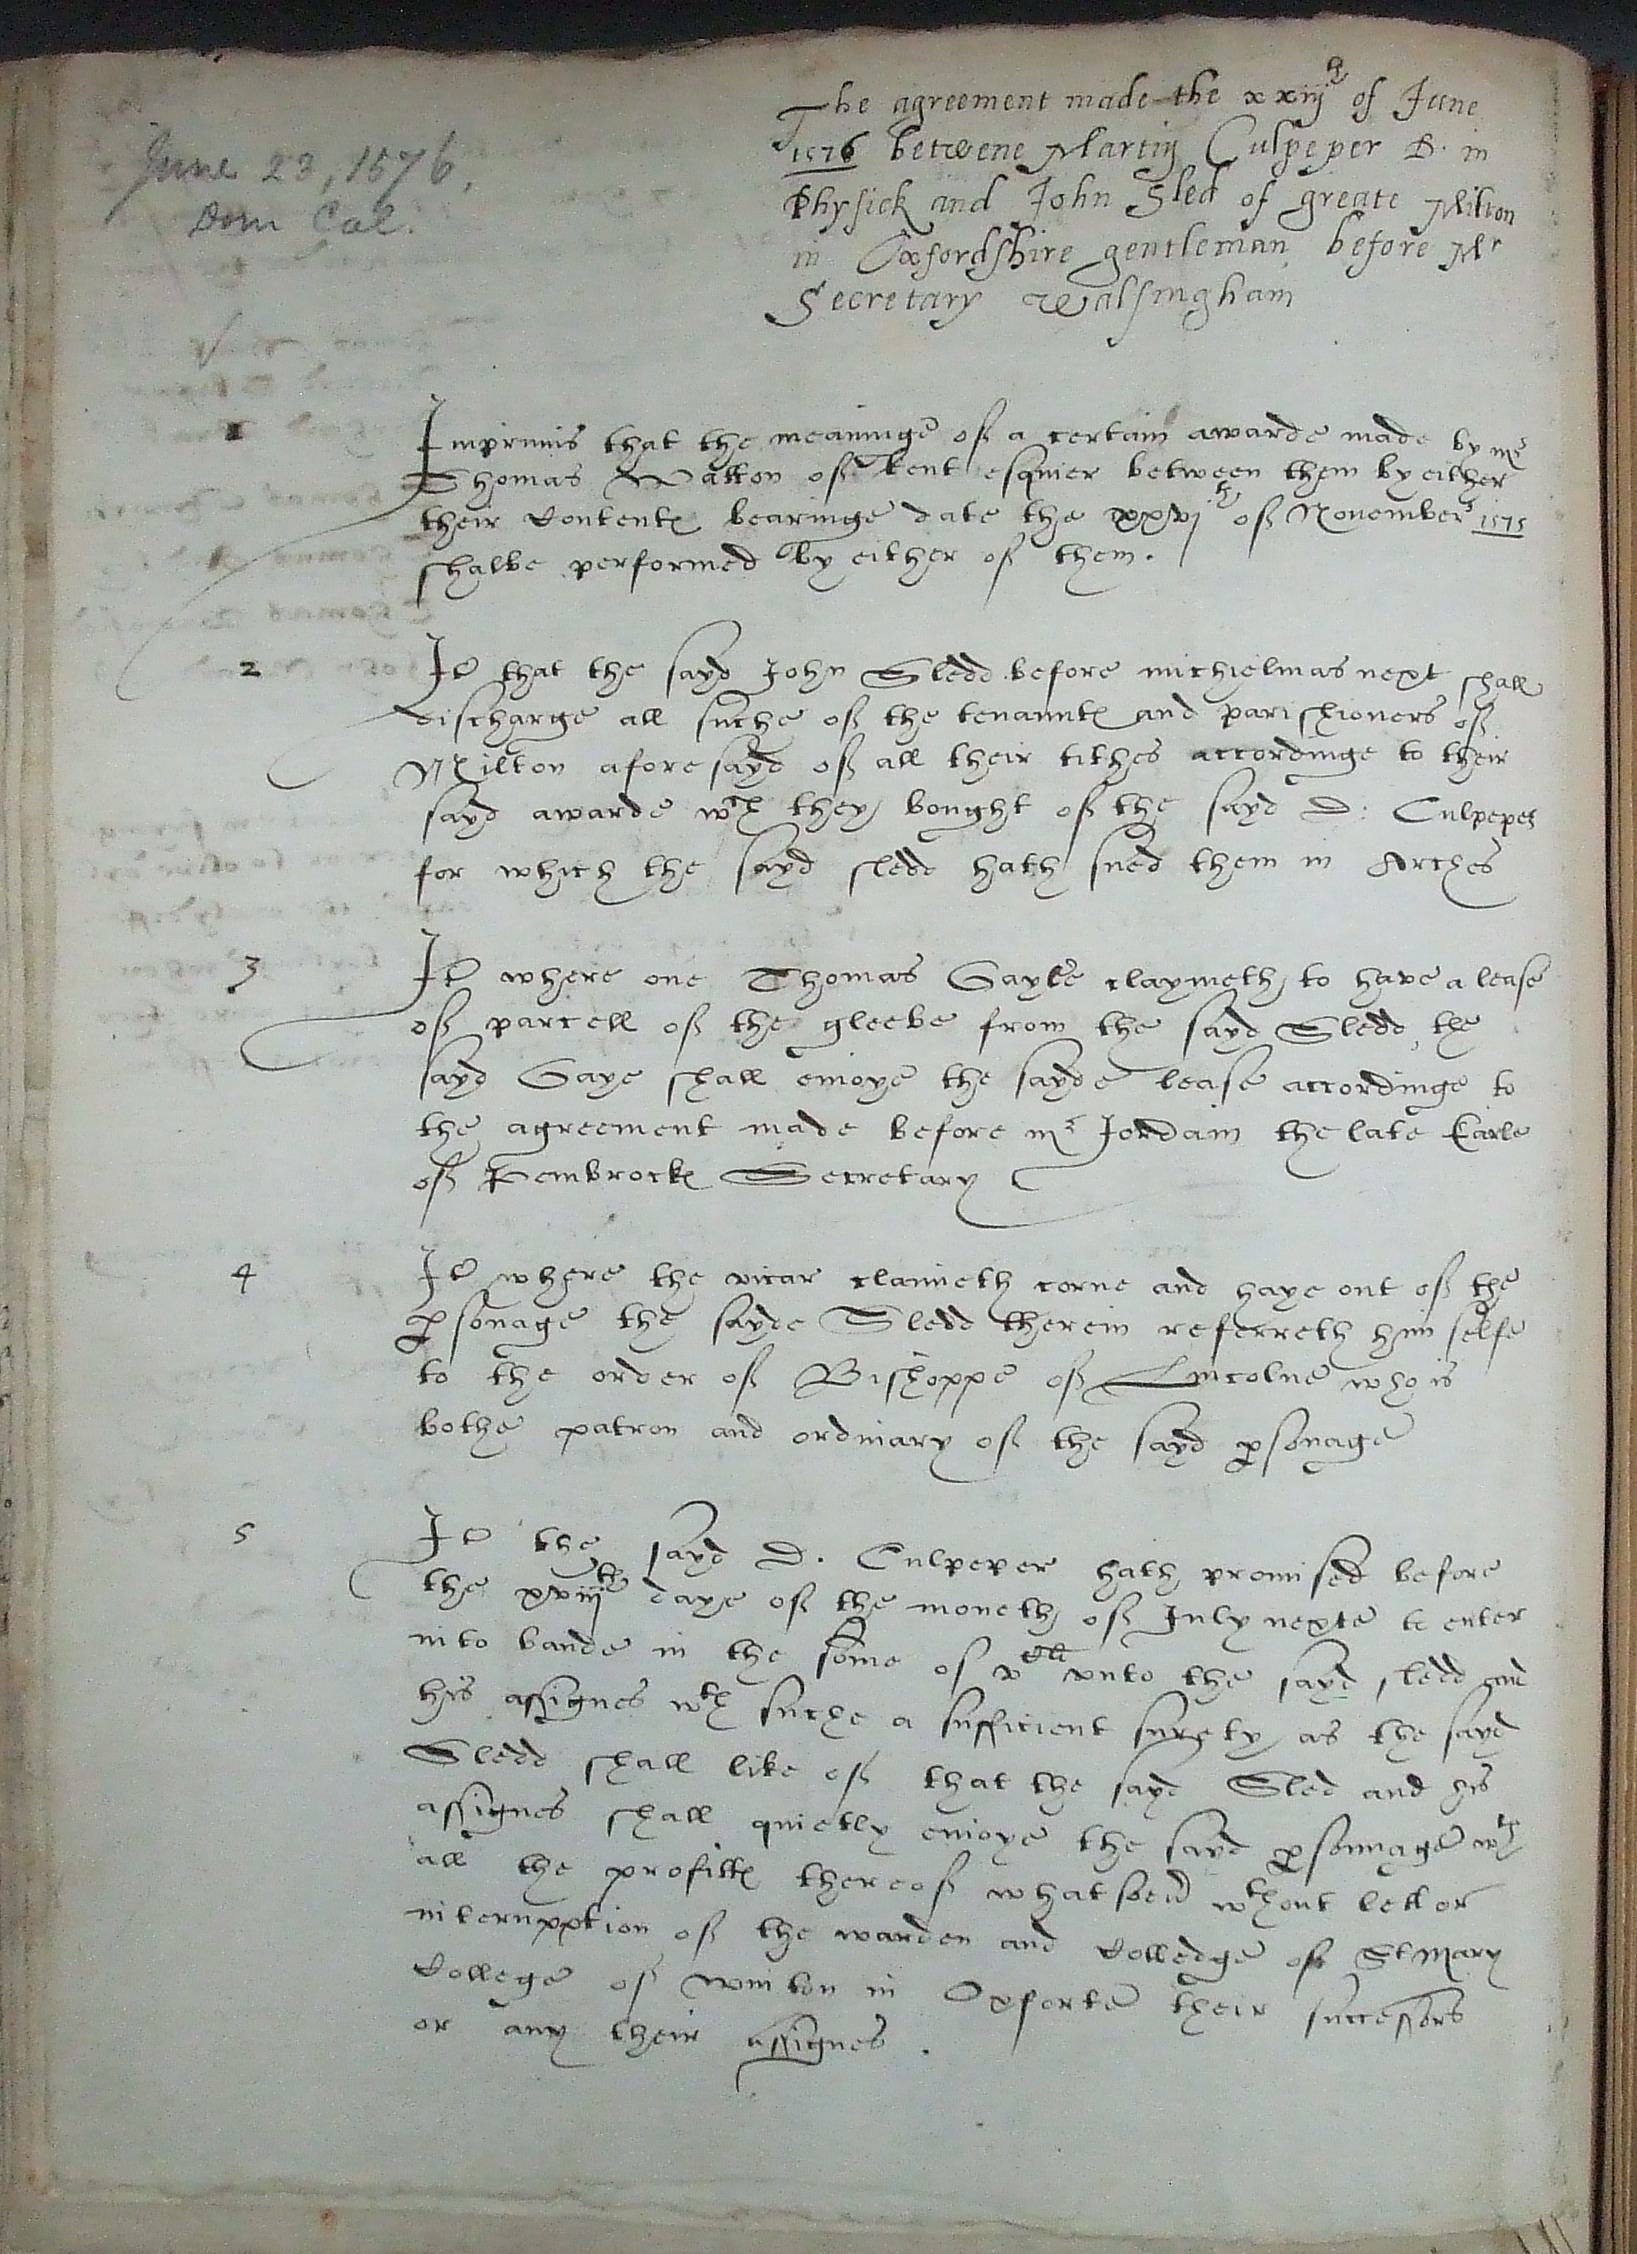 June 23, 1576.
Dom Cal.
The agreement made the xxiijth of June
1576 betwene Martin Culpeper D. in
Physick and John Sled of greate Milton
in Oxfordshire gentleman before Mr
Secretary Walsingham
1
Imprimis that the meaninge of a certain awarde made by mr
Thomas Watton of Kent esquier between them by either
their contentes bearinge date the xxvjth of November 1575
shalbe performed by either of them.
2
It that the sayd John Sledd before michielmas next shall
discharge all suche of the tenanntes and parishioners of
Milton aforesayd of all their tithes accordinge to their
sayd awarde wch they bought of the sayd D: Culpeper
for which the sayd sledd hath sued them in Arches
3
It where one Thomas Gaye claymeth to have a lease
of parcell of the gleebe from the sayd Sledd, the
sayd Gaye shall enioye the sayde lease accordinge to
the agreement made before mr Jordain the late Earle
of Pembrockes Secretary
4
It where the vicar claimeth corne and haye out of the
psonage the sayde Sledd therein referreth him selfe
to the order of Bishoppe of Lincolne who is
bothe patron and ordinary of the sayd psonage
5
It the sayd D. Culpeper hath promised before
the xviijth daye of the moneth of July nexte to enter
into bande in the some of vcll vnto the sayd sledd and
his assignes wth suche a sufficient surety as the sayd
Sledd shall like of that the sayd Sled and his
assignes shall quietly enioye the sayd psonnage wth
all the profittes thereof whatsoeu wthout lett or
interupption of the warden and Colledge of St Mary
College of winton in Oxforte their successors
or any their assignes.